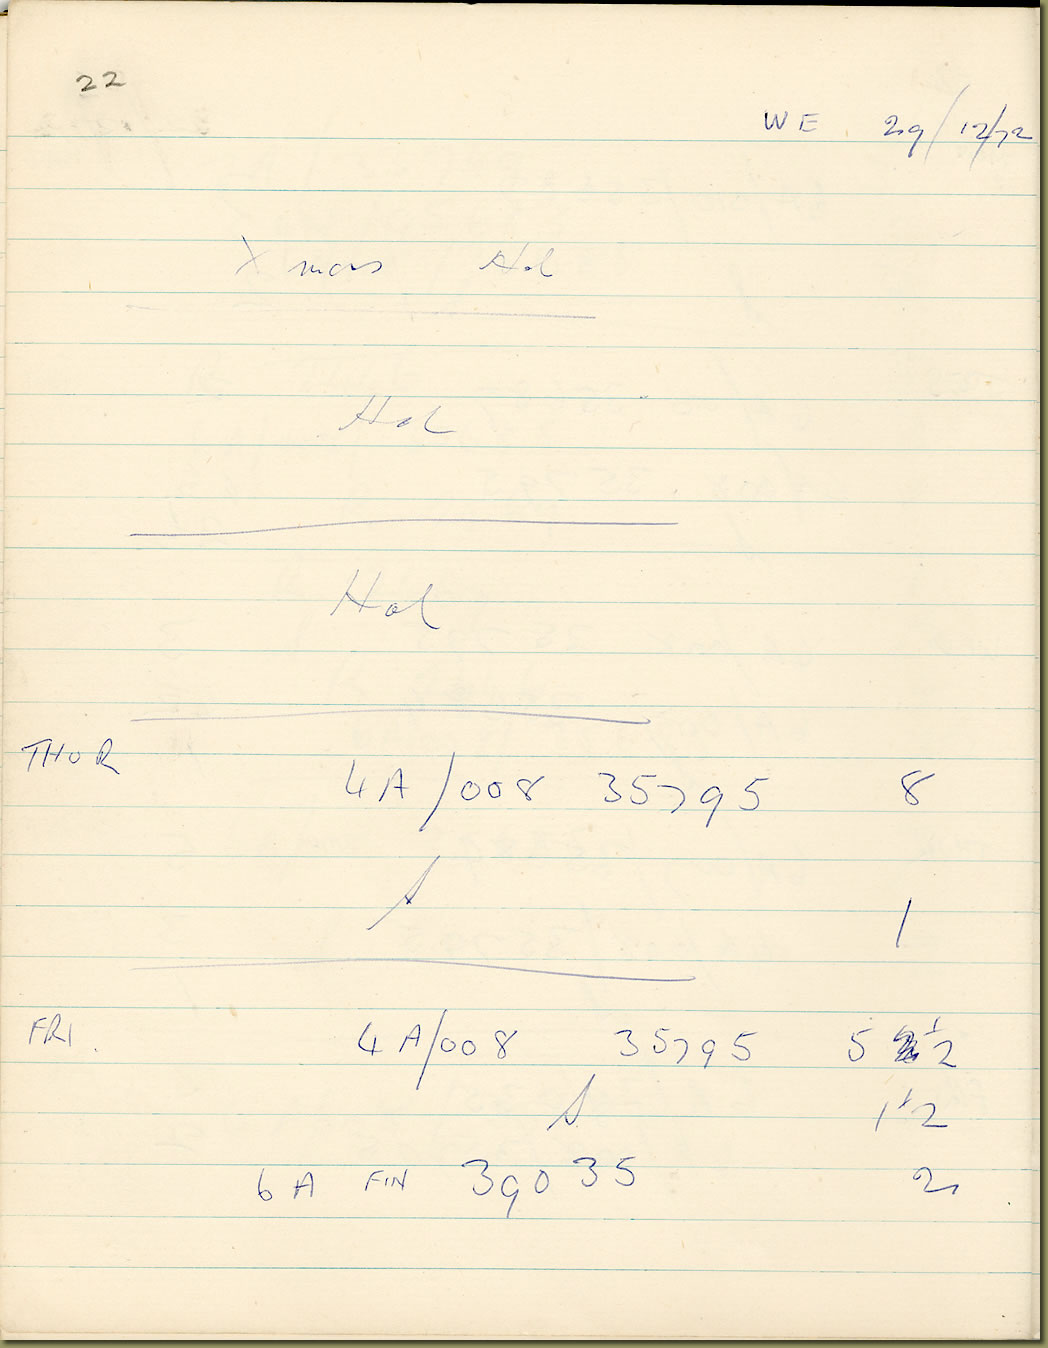 22
WE 29/12/72
Xmas Hol
Hol
Hol
THUR
4A/008 35795 8
S 1
FRI. 4A/008 35795 5 1/2
S 1 1/2
6A FIN 39035 2